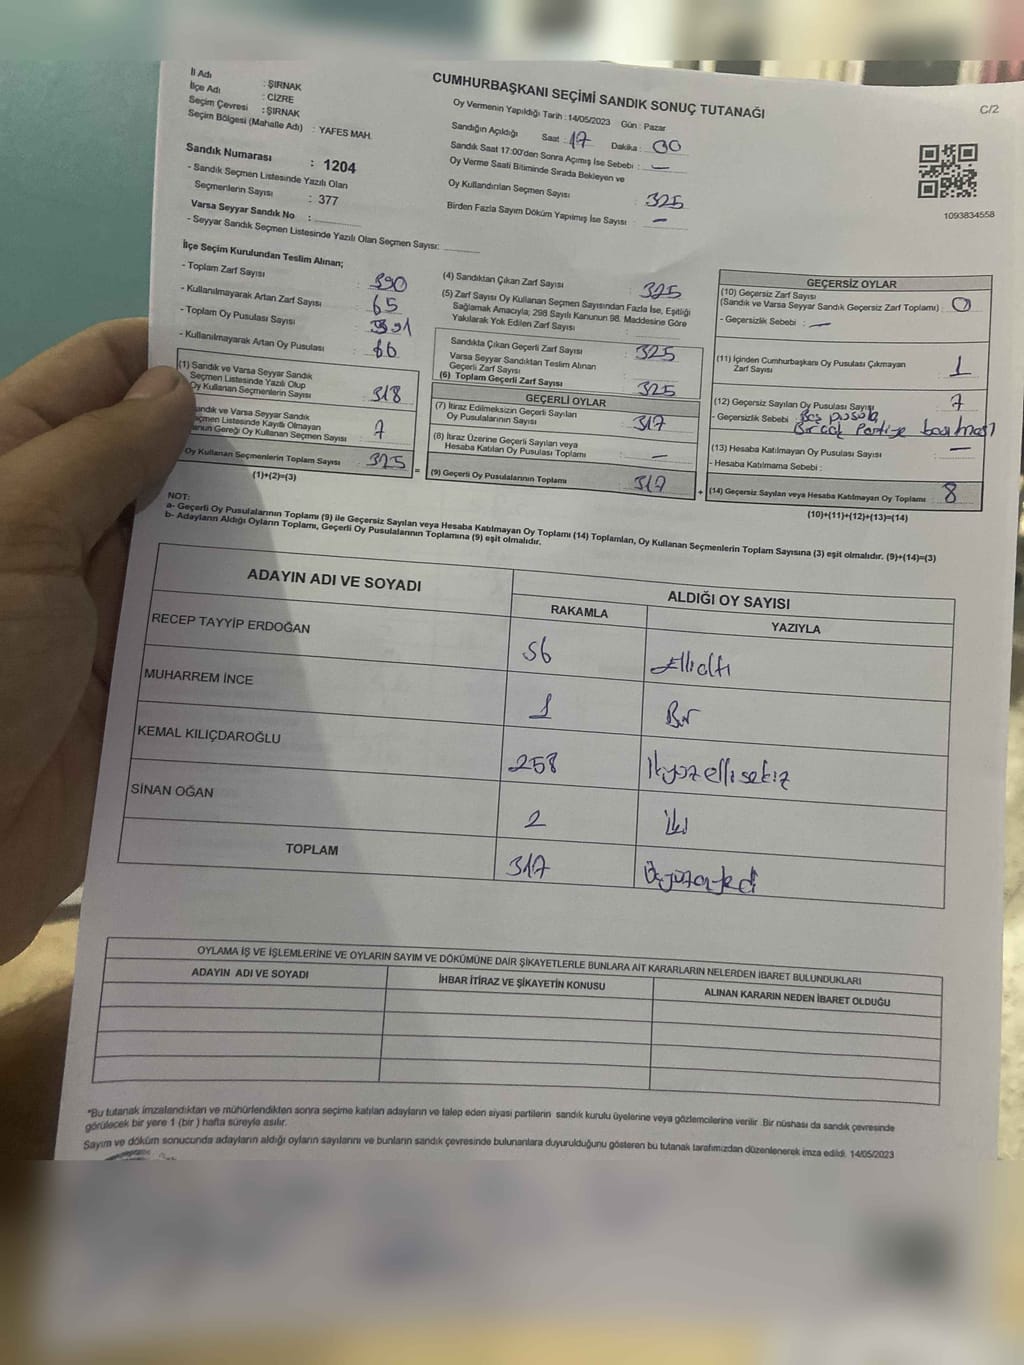 CUMHURBAŞKANI SEÇİMİ SANDIK SONUÇ TUTANAĞI
C/2
İl Adı : ŞIRNAK
İlçe Adı : CİZRE
Seçim Çevresi : ŞIRNAK
Seçim Bölgesi (Mahalle Adı) : YAFES MAH.
Sandık Numarası : 1204
- Sandık Seçmen Listesinde Yazılı Olan
Seçmenlerin Sayısı : 377
Varsa Seyyar Sandık No :
- Seyyar Sandık Seçmen Listesinde Yazılı Olan Seçmen Sayısı:
Oy Vermenin Yapıldığı Tarih : 14/05/2023 Gün : Pazar
Sandığın Açıldığı Saat : 17 Dakika : 00
Sandık Saat 17:00'den Sonra Açımış İse Sebebi : —
Oy Verme Saati Bitiminde Sırada Bekleyen ve
Oy Kullandırılan Seçmen Sayısı : 325
Birden Fazla Sayım Döküm Yapılmış İse Sayısı : —
1093834558
İlçe Seçim Kurulundan Teslim Alınan;
- Toplam Zarf Sayısı : 390
- Kullanılmayarak Artan Zarf Sayısı : 65
- Toplam Oy Pusulası Sayısı : 391
- Kullanılmayarak Artan Oy Pusulası : 66
(1) Sandık ve Varsa Seyyar Sandık
Seçmen Listesinde Yazılı Olup
Oy Kullanan Seçmenlerin Sayısı : 318
Sandık ve Varsa Seyyar Sandık
Seçmen Listesinde Kayıtlı Olmayan
Kanun Gereği Oy Kullanan Seçmen Sayısı : 7
Oy Kullanan Seçmenlerin Toplam Sayısı : 325
(1)+(2)=(3)
(4) Sandıktan Çıkan Zarf Sayısı : 325
(5) Zarf Sayısı Oy Kullanan Seçmen Sayısından Fazla İse, Eşitliği
Sağlamak Amacıyla; 298 Sayılı Kanunun 98. Maddesine Göre
Yakılarak Yok Edilen Zarf Sayısı :
Sandıkla Çıkan Geçerli Zarf Sayısı : 325
Varsa Seyyar Sandıktan Teslim Alınan
Geçerli Zarf Sayısı :
(6) Toplam Geçerli Zarf Sayısı : 325
GEÇERLİ OYLAR
(7) İtiraz Edilmeksizin Geçerli Sayılan
Oy Pusulalarının Sayısı : 317
(8) İtiraz Üzerine Geçerli Sayılan veya
Hesaba Katılan Oy Pusulası Toplamı : —
= (9) Geçerli Oy Pusulalarının Toplamı : 317
GEÇERSİZ OYLAR
(10) Geçersiz Zarf Sayısı
(Sandık ve Varsa Seyyar Sandık Geçersiz Zarf Toplamı) : 0
- Geçersizlik Sebebi : —
(11) İçinden Cumhurbaşkanı Oy Pusulası Çıkmayan
Zarf Sayısı : 1
(12) Geçersiz Sayılan Oy Pusulası Sayısı : 7
- Geçersizlik Sebebi : Boş pusula
Bircok Partiye basılması
(13) Hesaba Katılmayan Oy Pusulası Sayısı : —
- Hesaba Katılmama Sebebi :
+ (14) Geçersiz Sayılan veya Hesaba Katılmayan Oy Toplamı : 8
(10)+(11)+(12)+(13)=(14)
NOT:
a- Geçerli Oy Pusulalarının Toplamı (9) ile Geçersiz Sayılan veya Hesaba Katılmayan Oy Toplamı (14) Toplamları, Oy Kullanan Seçmenlerin Toplam Sayısına (3) eşit olmalıdır. (9)+(14)=(3)
b- Adayların Aldığı Oyların Toplamı, Geçerli Oy Pusulalarının Toplamına (9) eşit olmalıdır.
ADAYIN ADI VE SOYADI ALDIĞI OY SAYISI
RAKAMLA YAZIYLA
RECEP TAYYİP ERDOĞAN 56 Ellialtı
MUHARREM İNCE 1 Bir
KEMAL KILIÇDAROĞLU 258 İkiyüz ellisekiz
SİNAN OĞAN 2 İki
TOPLAM 317 Üçyüzonyedi
OYLAMA İŞ VE İŞLEMLERİNE VE OYLARIN SAYIM VE DÖKÜMÜNE DAİR ŞİKAYETLERLE BUNLARA AİT KARARLARIN NELERDEN İBARET BULUNDUKLARI
ADAYIN ADI VE SOYADI İHBAR İTİRAZ VE ŞİKAYETİN KONUSU ALINAN KARARIN NEDEN İBARET OLDUĞU
*Bu tutanak imzalandıktan ve mühürlendikten sonra seçime katılan adayların ve talep eden siyasi partilerin sandık kurulu üyelerine veya gözlemcilerine verilir. Bir nüshası da sandık çevresinde
görülecek bir yere 1 (bir ) hafta süreyle asılır.
Sayım ve döküm sonucunda adayların aldığı oyların sayılarını ve bunların sandık çevresinde bulunanlara duyurulduğunu gösteren bu tutanak tarafımızdan düzenlenerek imza edildi. 14/05/2023